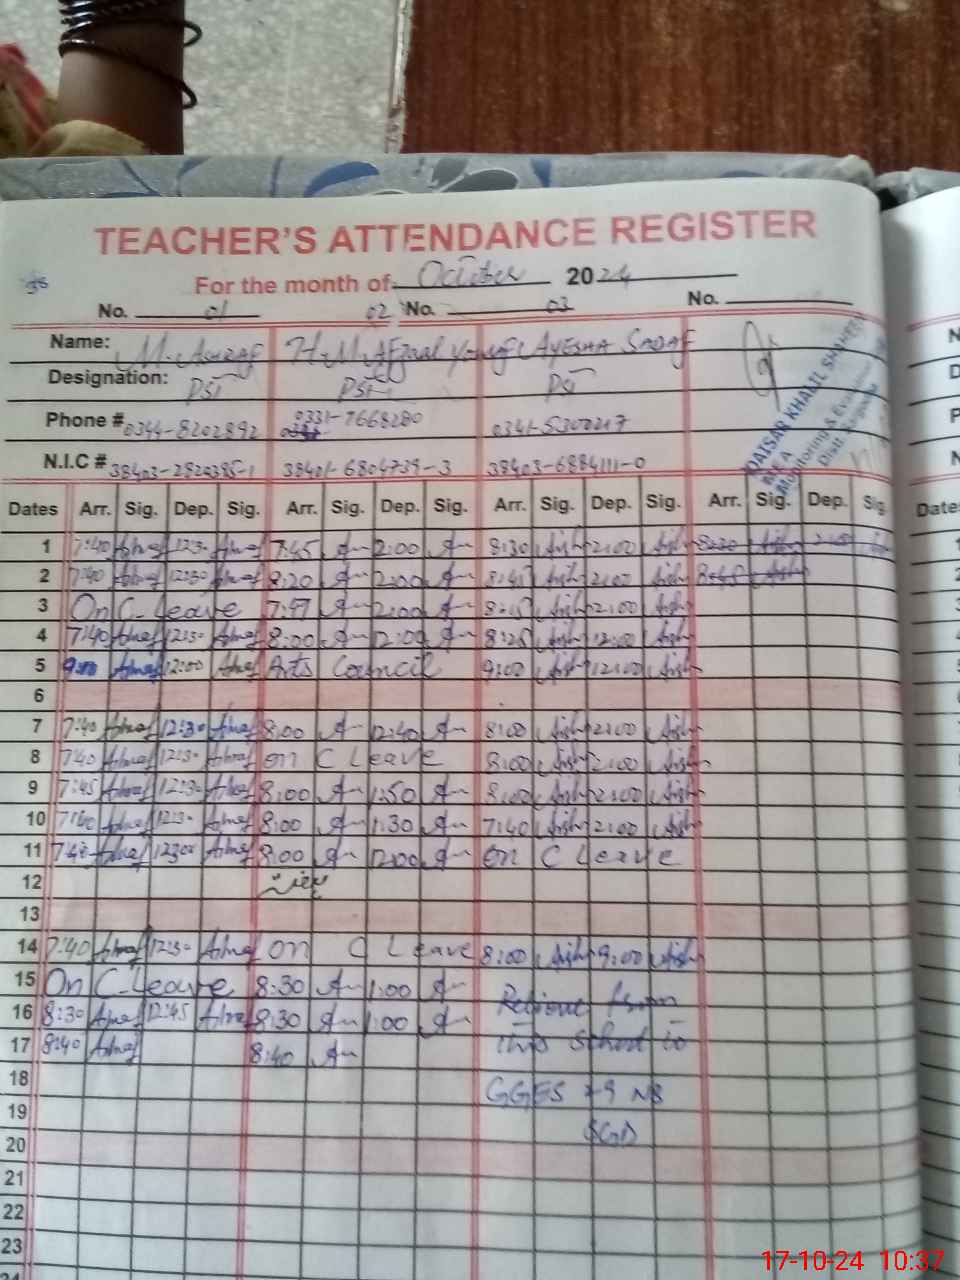 TEACHER'S ATTENDANCE REGISTER
For the month of October 2024
No. 01 02 No. 03 No.
Name: M. ASHRAF H.M. Afzaal Yousaf AYESHA SADAF
Designation: PST PST PST
Phone # 0344-8202892 0331-7668280 0341-5300217
N.I.C # 38403-2820385-1 38401-6804739-3 38403-6884111-0
QAISAR KHALIL SHAHEEN
MEA
Monitoring & Evaluation
Distt. Sargodha
Dates Arr. Sig. Dep. Sig. Arr. Sig. Dep. Sig. Arr. Sig. Dep. Sig. Arr. Sig. Dep. Sig.
1 7:40 Ashraf 12:30 Ashraf 7:45 2:00 8:30 Aish 2:00 Aish 8:30 Aish 2:00
2 7:40 Ashraf 12:30 Ashraf 8:20 2:00 8:45 Aish 2:00 Aish 8:45 Aish
3 On C-Leave 7:47 2:00 8:15 Aish 2:00 Aish
4 7:40 Ashraf 12:30 Ashraf 8:00 12:00 8:25 Aish 12:00 Aish
5 9:00 Ashraf 12:00 Ashraf Arts Council 9:00 Aish 12:00 Aish
6
7 7:40 Ashraf 12:30 Ashraf 8:00 12:40 8:00 Aish 2:00 Aish
8 7:40 Ashraf 12:30 Ashraf on C Leave 8:00 Aish 2:00 Aish
9 7:45 Ashraf 12:30 Ashraf 8:00 1:50 8:00 Aish 2:00 Aish
10 7:40 Ashraf 12:30 Ashraf 8:00 1:30 7:40 Aish 2:00 Aish
11 7:40 Ashraf 12:00 Ashraf 8:00 12:00 on C Leave
12
13
14 7:40 Ashraf 12:30 Ashraf on C Leave 8:00 Aish 9:00 Aish
15 On C-Leave 8:30 1:00
16 8:30 Ashraf 12:45 Ashraf 8:30 1:00 Relieve from
17 8:40 Ashraf 8:40 this school to
18 GGES 79 NB
19 SGD
20
21
22
23
17-10-24 10:37